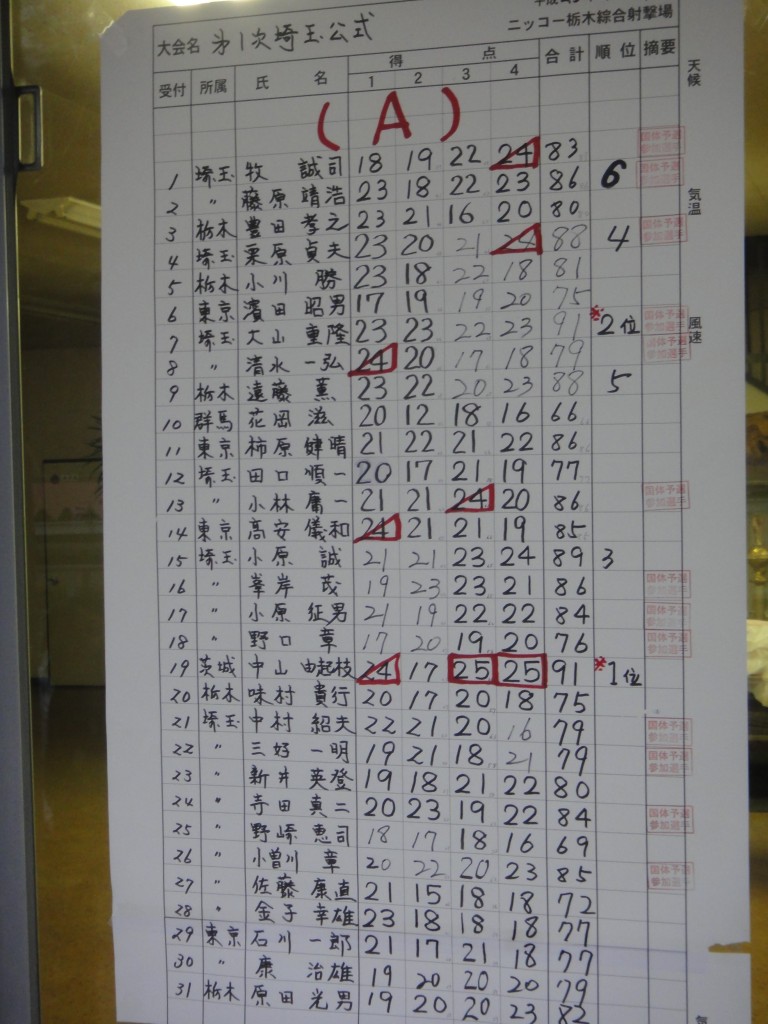 ニッコー栃木綜合射撃場
大会名 第1次埼玉公式
受付 所属 氏名 得点 1 2 3 4 合計 順位 摘要
天候
(A)
1 埼玉 牧 誠司 18 19 22 24 83 国体予選 参加選手
2 〃 藤原 靖浩 23 18 22 23 86 6 国体予選 参加選手
気温
3 栃木 豊田 孝之 23 21 16 20 80
4 埼玉 栗原 貞夫 23 20 21 24 88 4 国体予選 参加選手
5 栃木 小川 勝 23 18 22 18 81
6 東京 濱田 昭男 17 19 19 20 75
7 埼玉 大山 重隆 23 23 22 23 91 ※2位 国体予選 参加選手
風速
8 〃 清水 一弘 24 20 17 18 79 国体予選 参加選手
9 栃木 遠藤 薫 23 22 20 23 88 5
10 群馬 花岡 滋 20 12 18 16 66
11 東京 柿原 健晴 21 22 21 22 86
12 埼玉 田口 順一 20 17 21 19 77
13 〃 小林 庸一 21 21 24 20 86 国体予選 参加選手
14 東京 高安 儀和 24 21 21 19 85
15 埼玉 小原 誠 21 21 23 24 89 3
16 〃 峯岸 茂 19 23 23 21 86 国体予選 参加選手
17 〃 小原 征男 21 19 22 22 84 国体予選 参加選手
18 〃 野口 章 17 20 19 20 76 国体予選 参加選手
19 茨城 中山 由起枝 24 17 25 25 91 ※1位
20 栃木 味村 貴行 20 17 20 18 75
21 埼玉 中村 紹夫 22 21 20 16 79 国体予選 参加選手
22 〃 三好 一明 19 21 18 21 79 国体予選 参加選手
23 〃 新井 英登 19 18 21 22 80
24 〃 寺田 真二 20 23 19 22 84 国体予選 参加選手
25 〃 野崎 恵司 18 17 18 16 69
26 〃 小曽川 章 20 22 20 23 85 国体予選 参加選手
27 〃 佐藤 康直 21 15 18 18 72
28 〃 金子 幸雄 23 18 18 18 77
29 東京 石川 一郎 21 17 21 18 77
30 〃 康 治雄 19 20 20 20 79
31 栃木 原田 光男 19 20 20 23 82